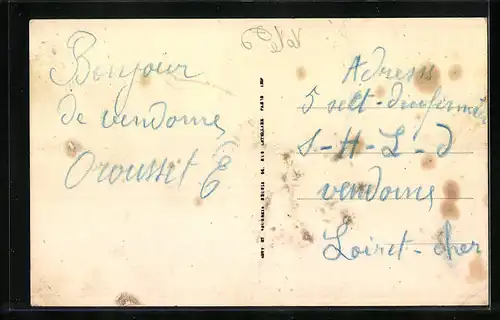 Bonjour
de vendome
Orousset E
Adress
5 sect-dinfirmier
S-H-L-d
vendome
Loiret-cher